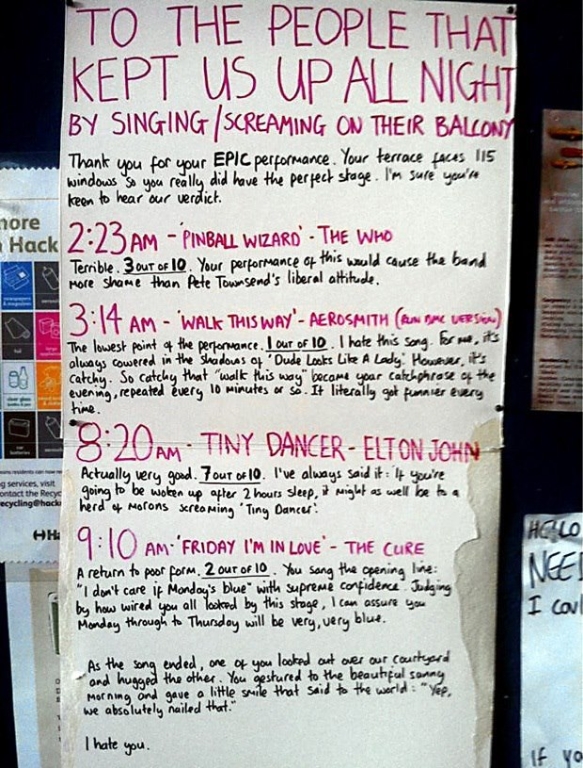 TO THE PEOPLE THAT
KEPT US UP ALL NIGHT
BY SINGING/SCREAMING ON THEIR BALCONY
Thank you for your EPIC performance. Your terrace faces 115
windows so you really did have the perfect stage. I'm sure you're
keen to hear our verdict.
2:23AM - 'PINBALL WIZARD' - THE WHO
Terrible. 3 OUT OF 10. Your performance of this would cause the band
more shame than Pete Townsend's liberal attitude.
3:14 AM - 'WALK THIS WAY' - AEROSMITH (RUN DMC VERSION)
The lowest point of the performance. 1 out of 10. I hate this song. For me, it's
always cowered in the shadows of 'Dude Looks Like A Lady'. However, it's
catchy. So catchy that "walk this way" became your catchphrase of the
evening, repeated every 10 minutes or so. It literally got funnier every
time.
8:20AM - TINY DANCER - ELTON JOHN
Actually very good. 7 OUT OF 10. I've always said it: 'If you're
going to be woken up after 2 hours sleep, it might as well be to a
herd of morons screaming 'Tiny Dancer'.
9:10 AM - 'FRIDAY I'M IN LOVE' - THE CURE
A return to poor form. 2 OUT OF 10. You sang the opening line:
"I don't care if Monday's blue" with supreme confidence. Judging
by how wired you all looked by this stage, I can assure you
Monday through to Thursday will be very, very blue.
As the song ended, one of you looked out over our courtyard
and hugged the other. You gestured to the beautiful sunny
morning and gave a little smile that said to the world: "Yep,
we absolutely nailed that."
I hate you.
more
Hack
HELLO
NEE
I cou
If yo